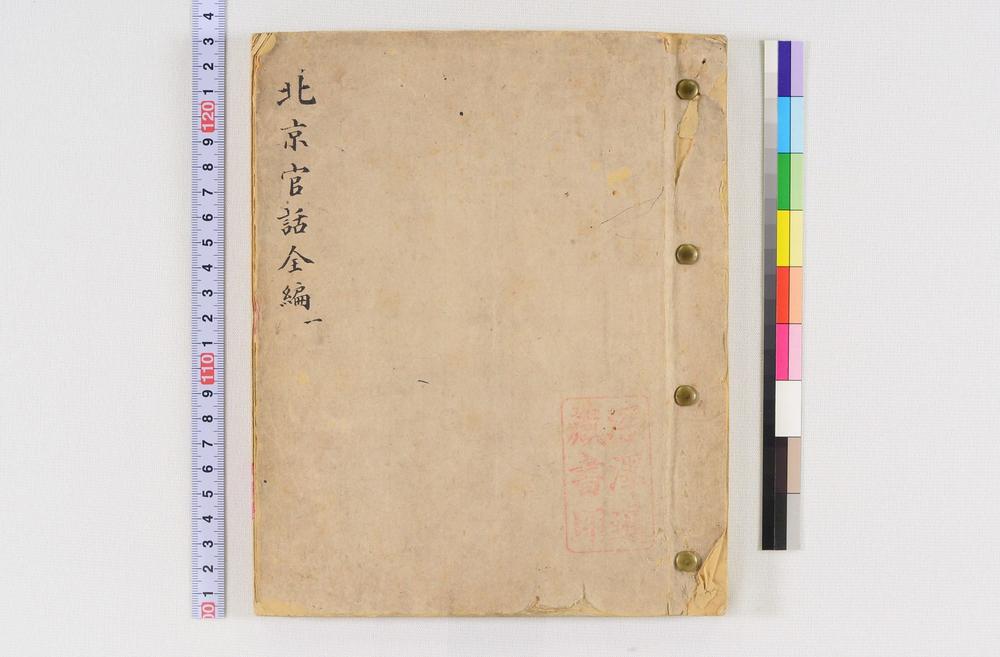 北京官話全編 一
4
3
2
1
120
9
8
7
6
5
4
3
2
1
110
9
8
7
6
5
4
3
2
1